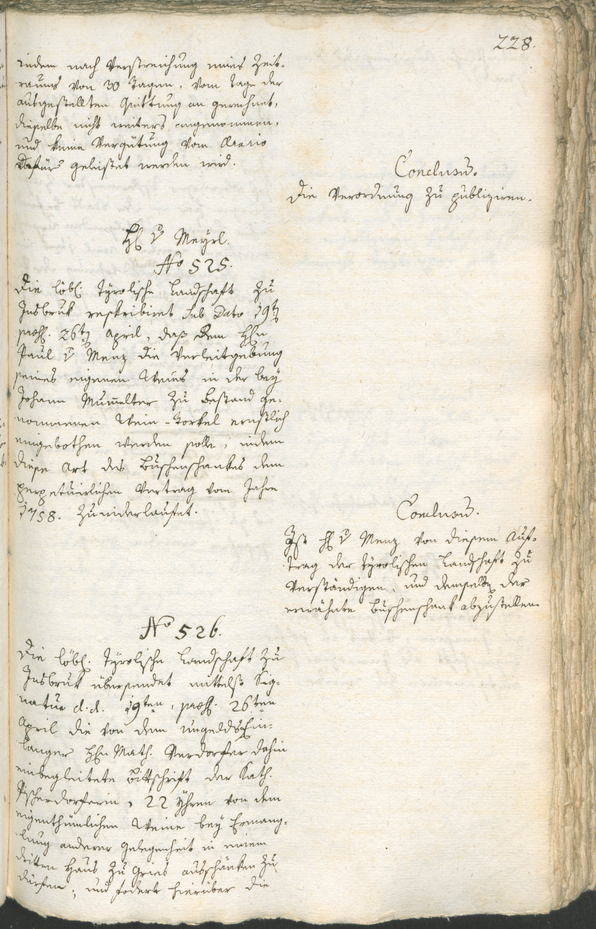 228.
indem nach Verstreichung eines Zeit-
raums von 30 Tagen, vom Tage der
ausgestellten Quittung an gerechnet,
dieselbe nicht weiters angenommen,
und keine Vergütung vom Aerario
dafür geleistet werden wird.
Conclusum.
Die Verordnung zu publiziren.
H. v. Meyrl.
No 525.
Die löbl. Tyrolische Landschaft zu
Insbruk reskribiret sub dato 19t
præs. 26t April, daß dem Hrn
Paul v Menz die Verleitgebung
seines eigenen Weins in der bey
Johann Mumelter zu Bestand ge-
nommenen Wein-Torkel ernstlich
eingebothen werden solle, indem
diese Art des Buschenschankes dem
perpetuirlichen Vertrag vom Jahre
1758. zuwiderlaufet.
Conclusum.
Ist H v Menz von diesem Auf-
trag der Tyrolischen Landschaft zu
verständigen, und demselben der
erwähnte Buschenschank abzustellen.
No 526.
Die löbl. Tyrolische Landschaft zu
Insbruk übersendet mittelst Sig-
natur d.d. 19ten, præs. 26ten
April die von dem Ungeldsein-
langer Hrn Math. Verdorfer dahin
einbegleitete Bittschrift der Kath.
22 Yhren von dem
eigenthümlichen Weine bey Ermang-
lung anderer Gelegenheit in einem
dritten Haus zu Gries ausschänken zu
dürfen, und fodert hierüber die